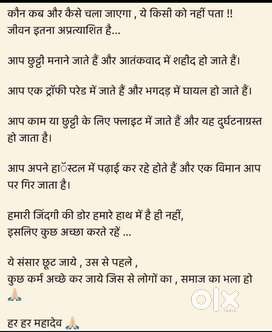 कौन कब और कैसे चला जाएगा , ये किसी को नहीं पता !!
जीवन इतना अप्रत्याशित है...
आप छुट्टी मनाने जाते हैं और आतंकवाद में शहीद हो जाते हैं।
आप एक ट्रॉफी परेड में जाते हैं और भगदड़ में घायल हो जाते हैं।
आप काम या छुट्टी के लिए फ्लाइट में जाते हैं और यह दुर्घटनाग्रस्त
हो जाता है।
आप अपने हाॅस्टल में पढ़ाई कर रहे होते हैं और एक विमान आप
पर गिर जाता है।
हमारी जिंदगी की डोर हमारे हाथ में है ही नहीं,
इसलिए कुछ अच्छा करते रहें ...
ये संसार छूट जाये , उस से पहले ,
कुछ कर्म अच्छे कर जाये जिस से लोगों का , समाज का भला हो
🙏🏻
OLX
हर हर महादेव 🙏🏻